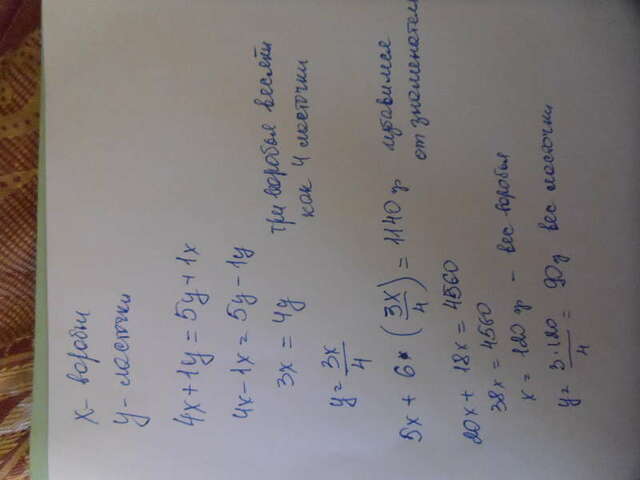 x - воробьи
y - ласточки
4x + 1y = 5y + 1x
4x - 1x = 5y - 1y
3x = 4y три воробья весят
как 4 ласточки
y = 3x/4
5x + 6 · (3x/4) = 1140 г избавимся
от знаменател
20x + 18x = 4560
38x = 4560
x = 120 г - вес воробья
y = 3·120/4 = 90 г вес ласточки